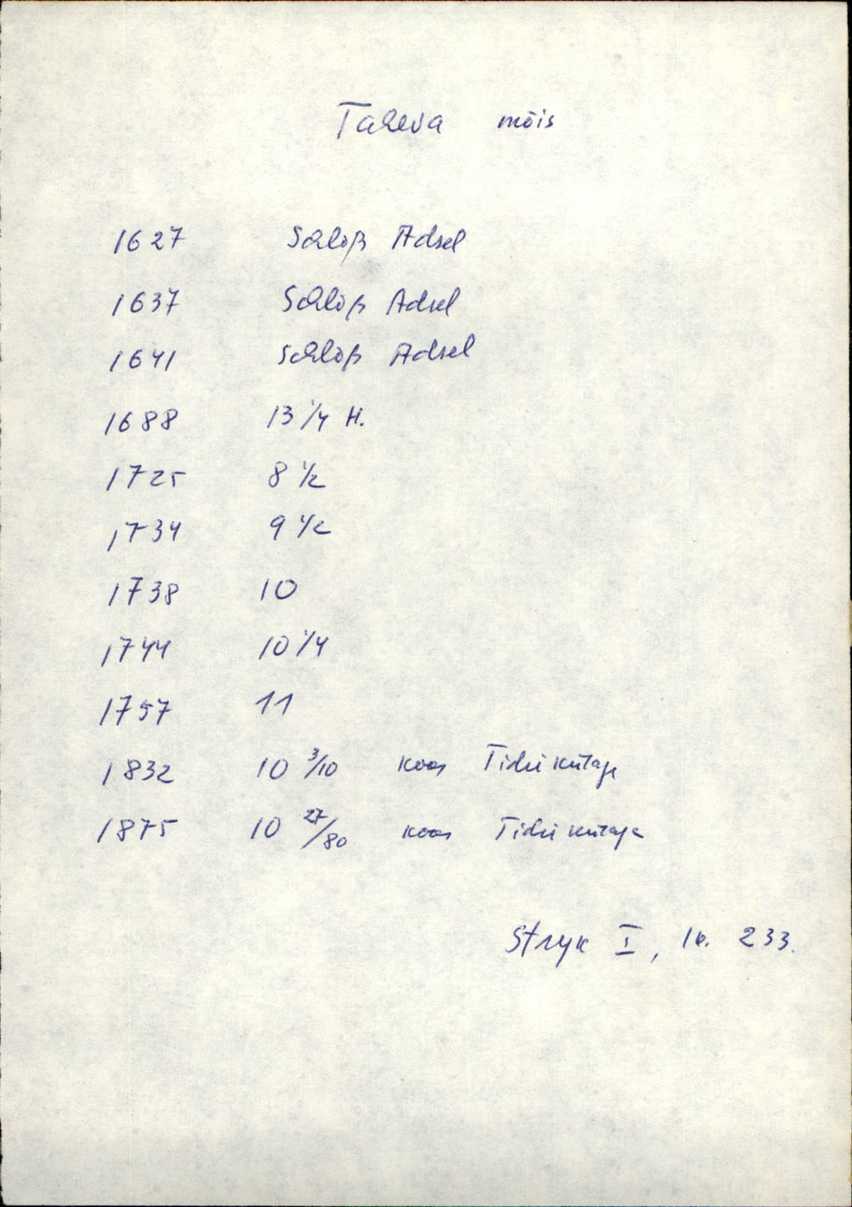 Taheva mõis
1627 Schloß Adsel
1637 Schloß Adsel
1641 Schloß Adsel
1688 13 1/4 H.
1725 8 1/2
1734 9 1/2
1738 10
1744 10 1/4
1757 11
1832 10 3/10 koos
1875 10 27/80 koos
Stryk I, lk. 233.